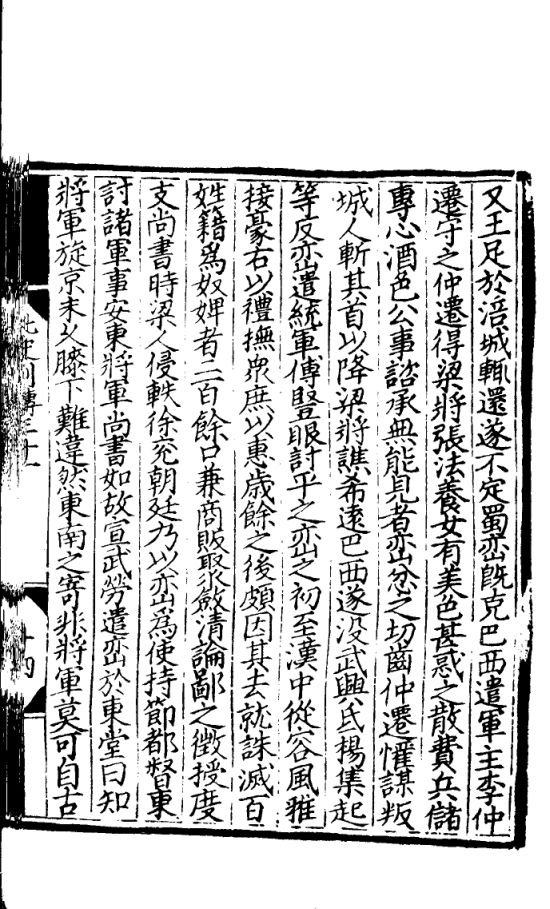 又王足於涪城輒還遂不定蜀巒既克巴西遣軍主李仲
遷守之仲遷得梁將張法養女有美色甚惑之散費兵儲
專心酒色公事諮承無能見者巒忿之切齒仲遷懼謀叛
城人斬其首以降梁將譙希遠巴西遂没武興氐楊集起
等反巒遣統軍傅豎眼討平之巒之初至漢中從容風雅
接豪右以禮撫衆庶以惠歳餘之後頗因其去就誅滅百
姓籍爲奴婢者二百餘口兼商販聚斂清論鄙之徴授度
支尚書時梁人侵軼徐兗朝廷乃以巒爲使持節都督東
討諸軍事安東將軍尚書如故宣武勞遣巒於東堂曰知
將軍旋京未久膝下難違然東南之寄非將軍莫可自古
北史列傳三十一
十四